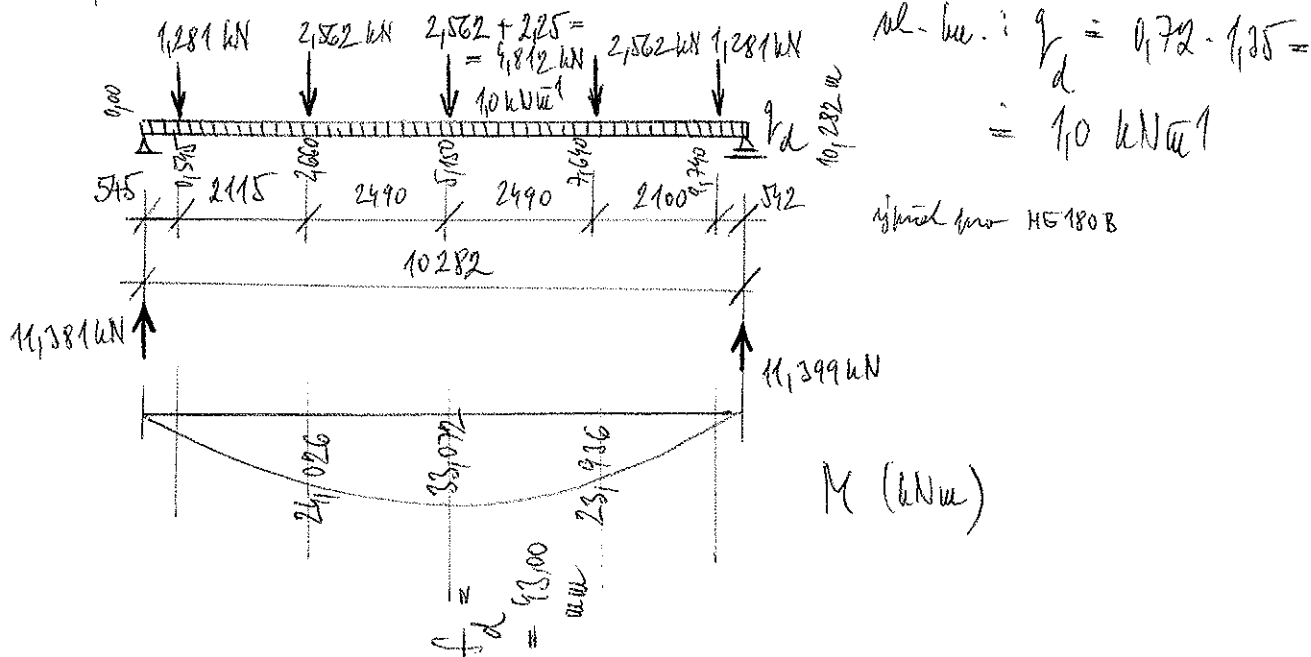 1,281 kN 2,562 kN 2,562 + 2,25 = 2,562 kN 1,281 kN
= 4,812 kN
1,0 kNm⁻¹
vl. : q_d = 0,72 · 1,35 =
= 1,0 kNm⁻¹
0,00 0,545 2,660 5,150 7,640 9,740 10,282 m
q_d
545 2115 2490 2490 2100 542
10282
pro HE 180 B
11,381 kN
11,399 kN
24,026 33,072 23,936
M (kNm)
f_d = 43,00 mm